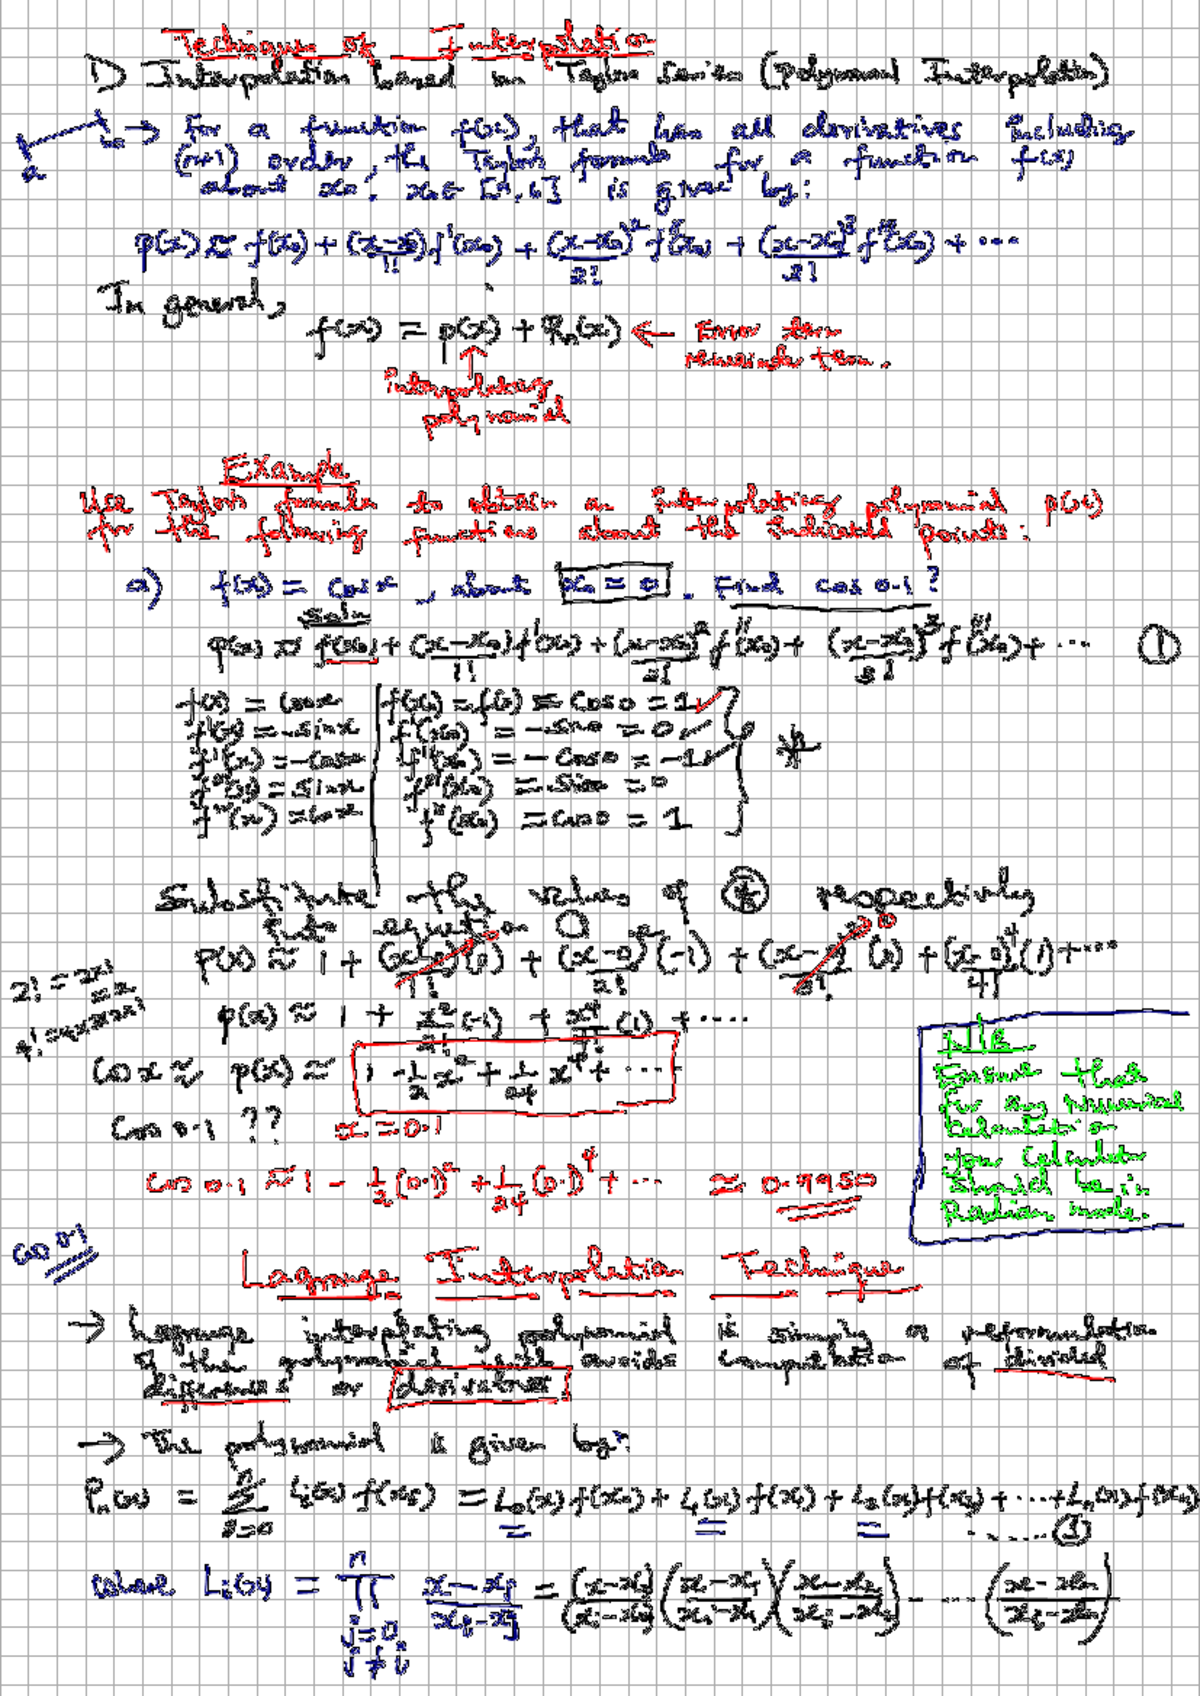 Technique of Interpolation
1) Interpolation based on Taylor Series (Polynomial Interpolation)
a b → For a function f(x), that has all derivatives including
(n+1) order, the Taylor formula for a function f(x)
about x₀: x₀ ∈ [a, b] is given by:
p(x) ≈ f(x₀) + (x-x₀)/1! f'(x₀) + (x-x₀)²/2! f''(x₀) + (x-x₀)³/3! f'''(x₀) + ...
In general,
f(x) = p(x) + Rₙ(x) ← Error term
remainder term.
↑
interpolating
polynomial
Example
Use Taylor's formula to obtain an interpolating polynomial p(x)
for the following functions about the indicated points:
a) f(x) = cos x, about x₀ = 0. Find cos 0.1?
Soln
p(x) ≈ f(x₀) + (x-x₀)/1! f'(x₀) + (x-x₀)²/2! f''(x₀) + (x-x₀)³/3! f'''(x₀) + ... ①
f(x) = cos x | f(x₀) = f(0) = cos 0 = 1
f'(x) = -sin x | f'(x₀) = -sin 0 = 0
f''(x) = -cos x | f''(x₀) = -cos 0 = -1 *
f'''(x) = sin x | f'''(x₀) = sin 0 = 0
f''''(x) = cos x | f''''(x₀) = cos 0 = 1
Substitute the values of * respectively
into equation ①
p(x) ≈ 1 + (x-0)/1! (0) + (x-0)²/2! (-1) + (x-0)³/3! (0) + (x-0)⁴/4! (1) + ...
2! = 2x1! = 2
4! = 4x3x2x1!
p(x) ≈ 1 + x²/2! (-1) + x⁴/4! (1) + ....
cos x ≈ p(x) ≈ 1 - 1/2 x² + 1/24 x⁴ + ...
cos 0.1 ?? x = 0.1
cos 0.1 ≈ 1 - 1/2 (0.1)² + 1/24 (0.1)⁴ + ... ≈ 0.9950
N/B
Ensure that
for any Numerical
Calculation
your Calculator
should be in
Radian mode.
cos 0.1
Lagrange Interpolation Technique
→ Lagrange interpolating polynomial is simply a reformulation
of the polynomial that avoids computation of divided
differences or derivatives
→ The polynomial is given by:
Pₙ(x) = Σ Lᵢ(x) f(xᵢ) = L₀(x) f(x₀) + L₁(x) f(x₁) + L₂(x) f(x₂) + ... + Lₙ(x) f(xₙ)
n i=0 ...... ①
where Lᵢ(x) = ∏ (x - xⱼ)/(xᵢ - xⱼ) = ((x-x₀)/(xᵢ-x₀)) ((x-x₁)/(xᵢ-x₁)) ((x-x₂)/(xᵢ-x₂)) - .... ((x-xₙ)/(xᵢ-xₙ))
n j=0, j≠i